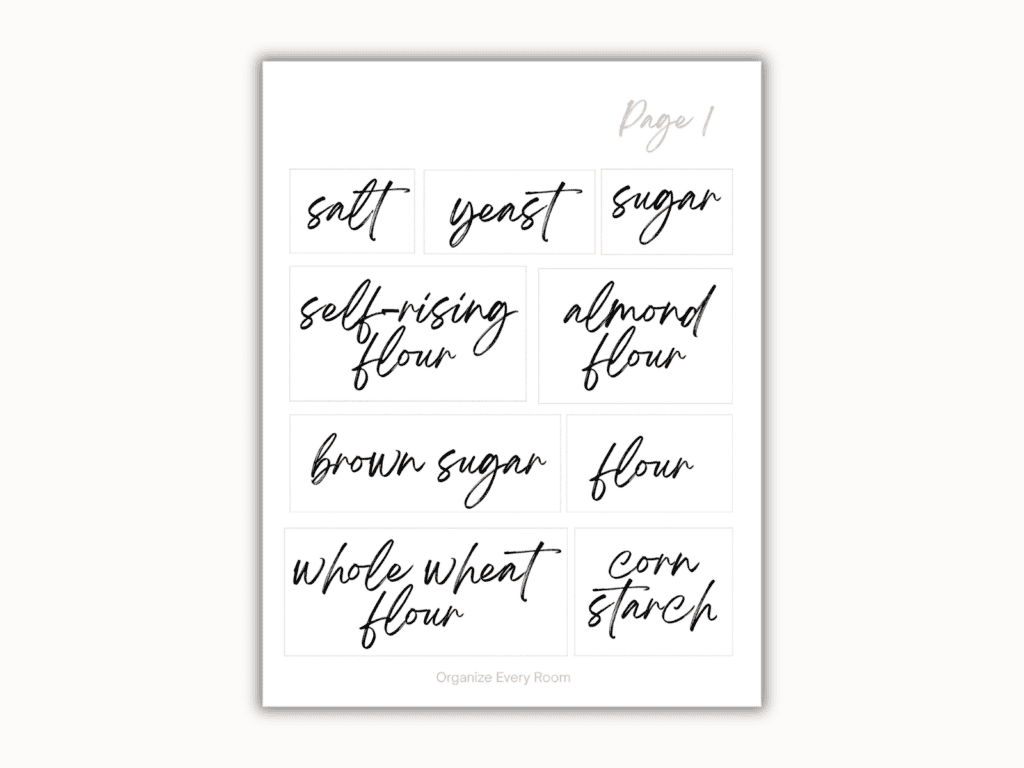 Page 1
salt
yeast
sugar
self-rising
flour
almond
flour
brown sugar
flour
whole wheat
flour
corn
starch
Organize Every Room